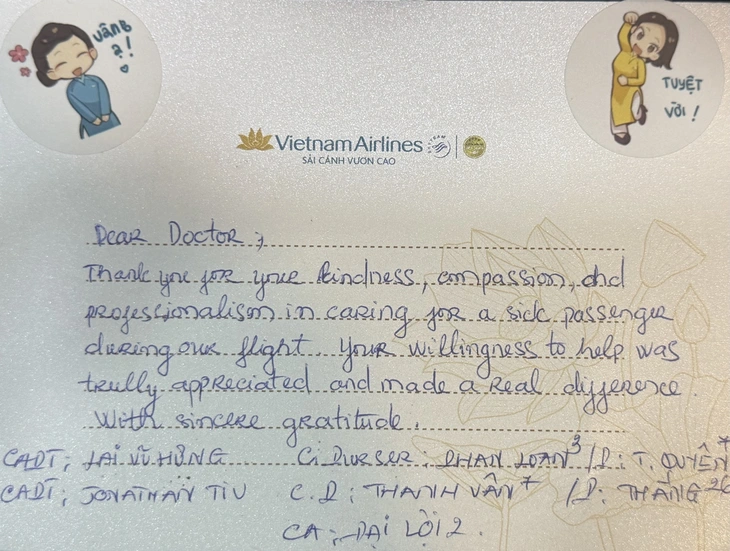 Vâng ạ!
TUYỆT VỜI!
Vietnam Airlines
SẢI CÁNH VƯƠN CAO
SKYTEAM
Dear Doctor,
Thank you for your kindness, compassion, and
professionalism in caring for a sick passenger
during our flight. Your willingness to help was
trully appreciated and made a real difference.
With sincere gratitude.
CAPT: LẠI VŨ HÙNG C. PURSER: PHAN LOAN3 /P: T. QUYÊN
CAPT: JONATHAN TIU C.P: THANH VÂN7 /P: THẮNG26
CA: ĐẠI LỢI 2.